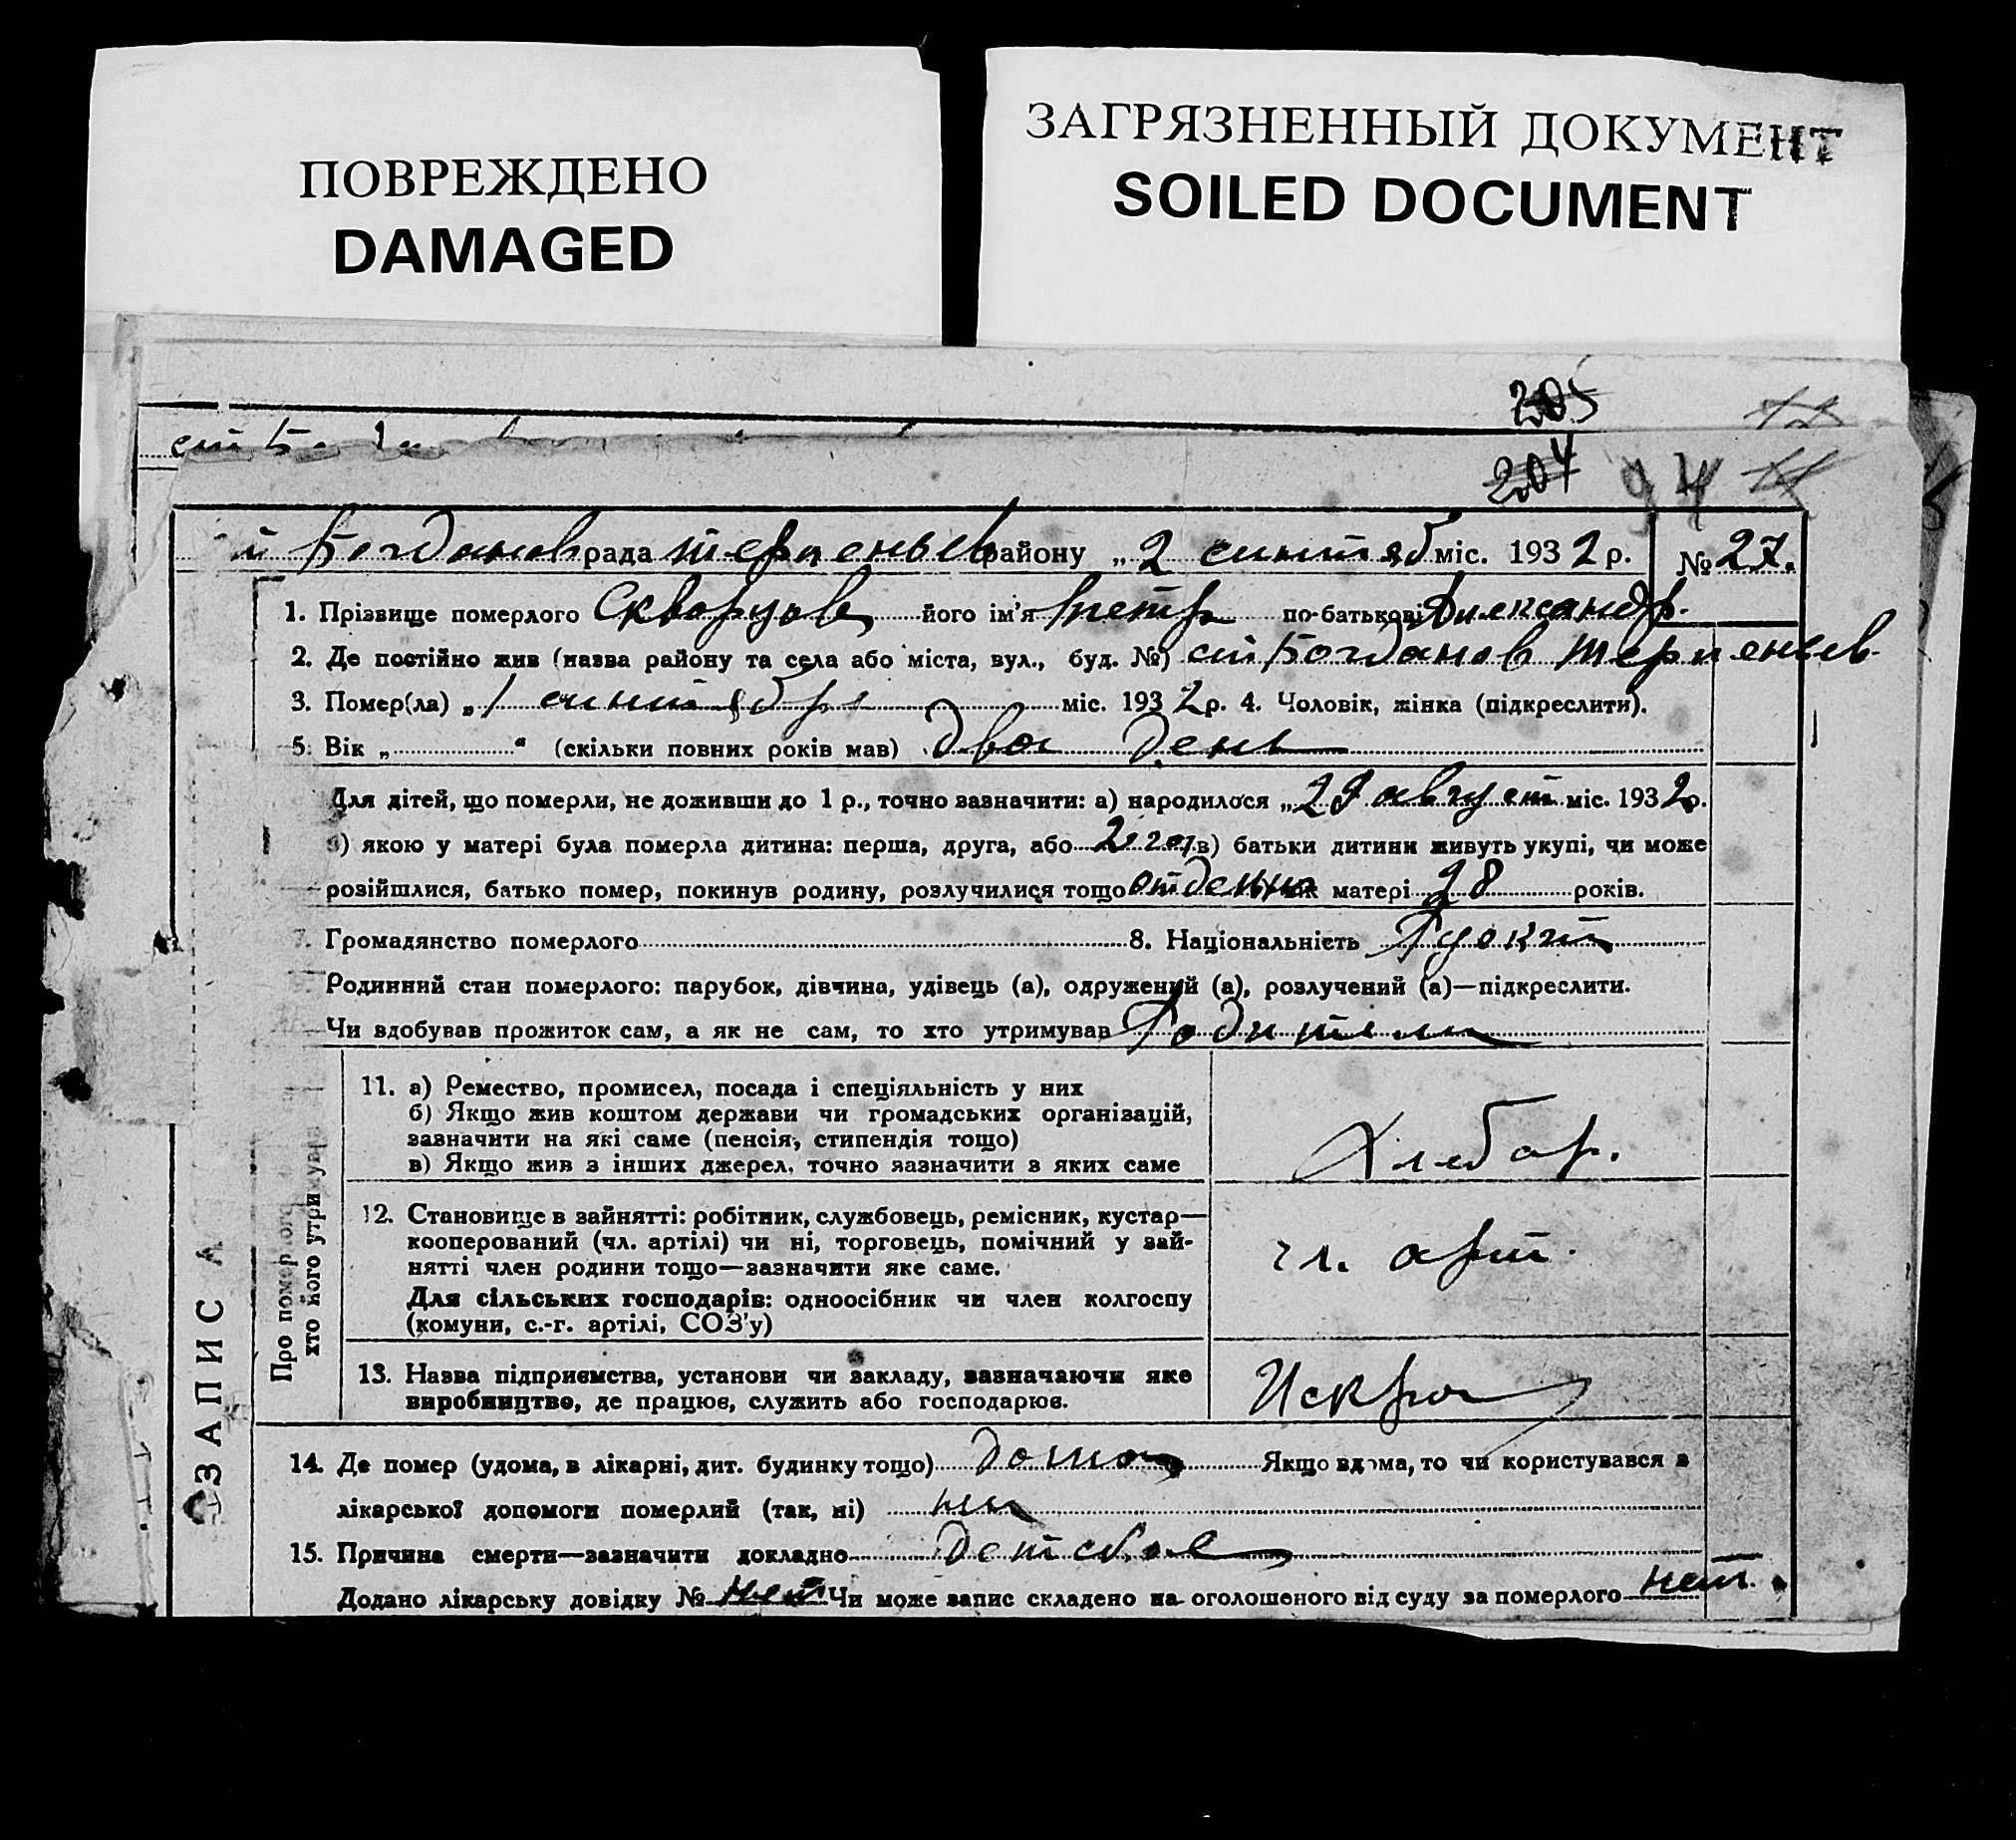 ПОВРЕЖДЕНО
DAMAGED
ЗАГРЯЗНЕННЫЙ ДОКУМЕНТ
SOILED DOCUMENT
205
204 94
Богданов рада терпеньев району „2 синтяб міс. 1932 р. № 27.
1. Прізвище померлого Скворцов його ім'я Петр по-батькові Александр.
2. Де постійно жив (назва району та села або міста, вул., буд. №) сил Богданов терпеньев.
3. Помер(ла) „1 синтября міс. 1932 р. 4. Чоловік, жінка (підкреслити).
5. Вік „ “ (скільки повних років мав) два день
Для дітей, що померли, не доживши до 1 р., точно зазначити: а) народилося „29 август міс. 1932 р.
) якою у матері була померла дитина: перша, друга, або в) батьки дитини живуть укупі, чи може
розійшлися, батько помер, покинув родину, розлучилися тощо отдельно вік матері 28 років.
7. Громадянство померлого 8. Національність
Родинний стан померлого: парубок, дівчина, удівець (а), одружений (а), розлучений (а)—підкреслити.
Чи вдобував прожиток сам, а як не сам, то хто утримував Родители
ЗАПИС
Про померлого
хто його утримував
11. а) Ремество, промисел, посада і спеціяльність у них
б) Якщо жив коштом держави чи громадських організацій,
зазначити на які саме (пенсія, стипендія тощо)
в) Якщо жив з інших джерел, точно зазначити з яких саме
Хлебор.
12. Становище в зайнятті: робітник, службовець, ремісник, кустар—
кооперований (чл. артілі) чи ні, торговець, помічний у зай-
нятті член родини тощо—зазначити яке саме.
Для сільських господарів: одноосібник чи член колгоспу
(комуни, с.-г. артілі, СОЗ'у)
чл. арт.
13. Назва підприємства, установи чи закладу, зазначаючи яке
виробництво, де працює, служить або господарює.
Искра
14. Де помер (удома, в лікарні, дит. будинку тощо) дома Якщо вдома, то чи користувався з
лікарської допомоги померлий (так, ні)
15. Причина смерти—зазначити докладно детское
Додано лікарську довідку № нет Чи може запис складено на оголошеного від суду за померлого нет.